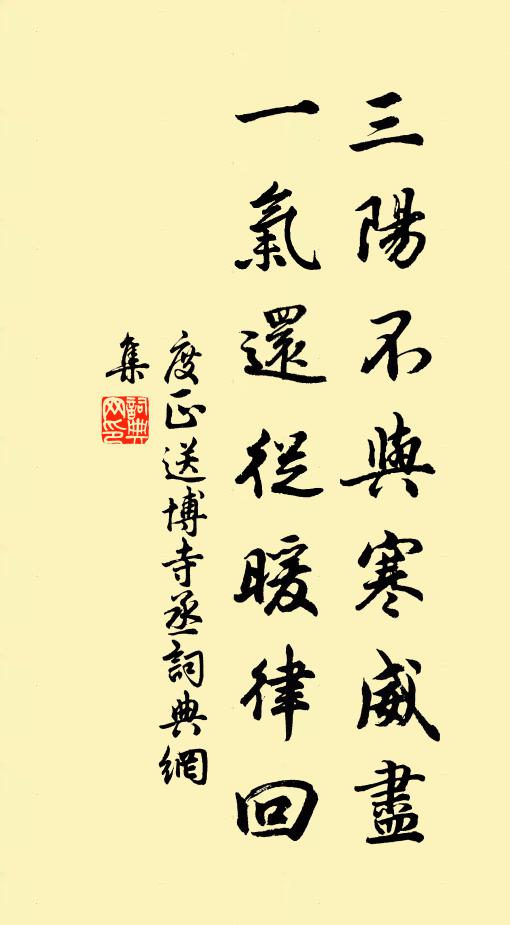 三陽不與寒威盡
一氣還從暖律回
度正送博寺丞詞典網
集
詞典網印